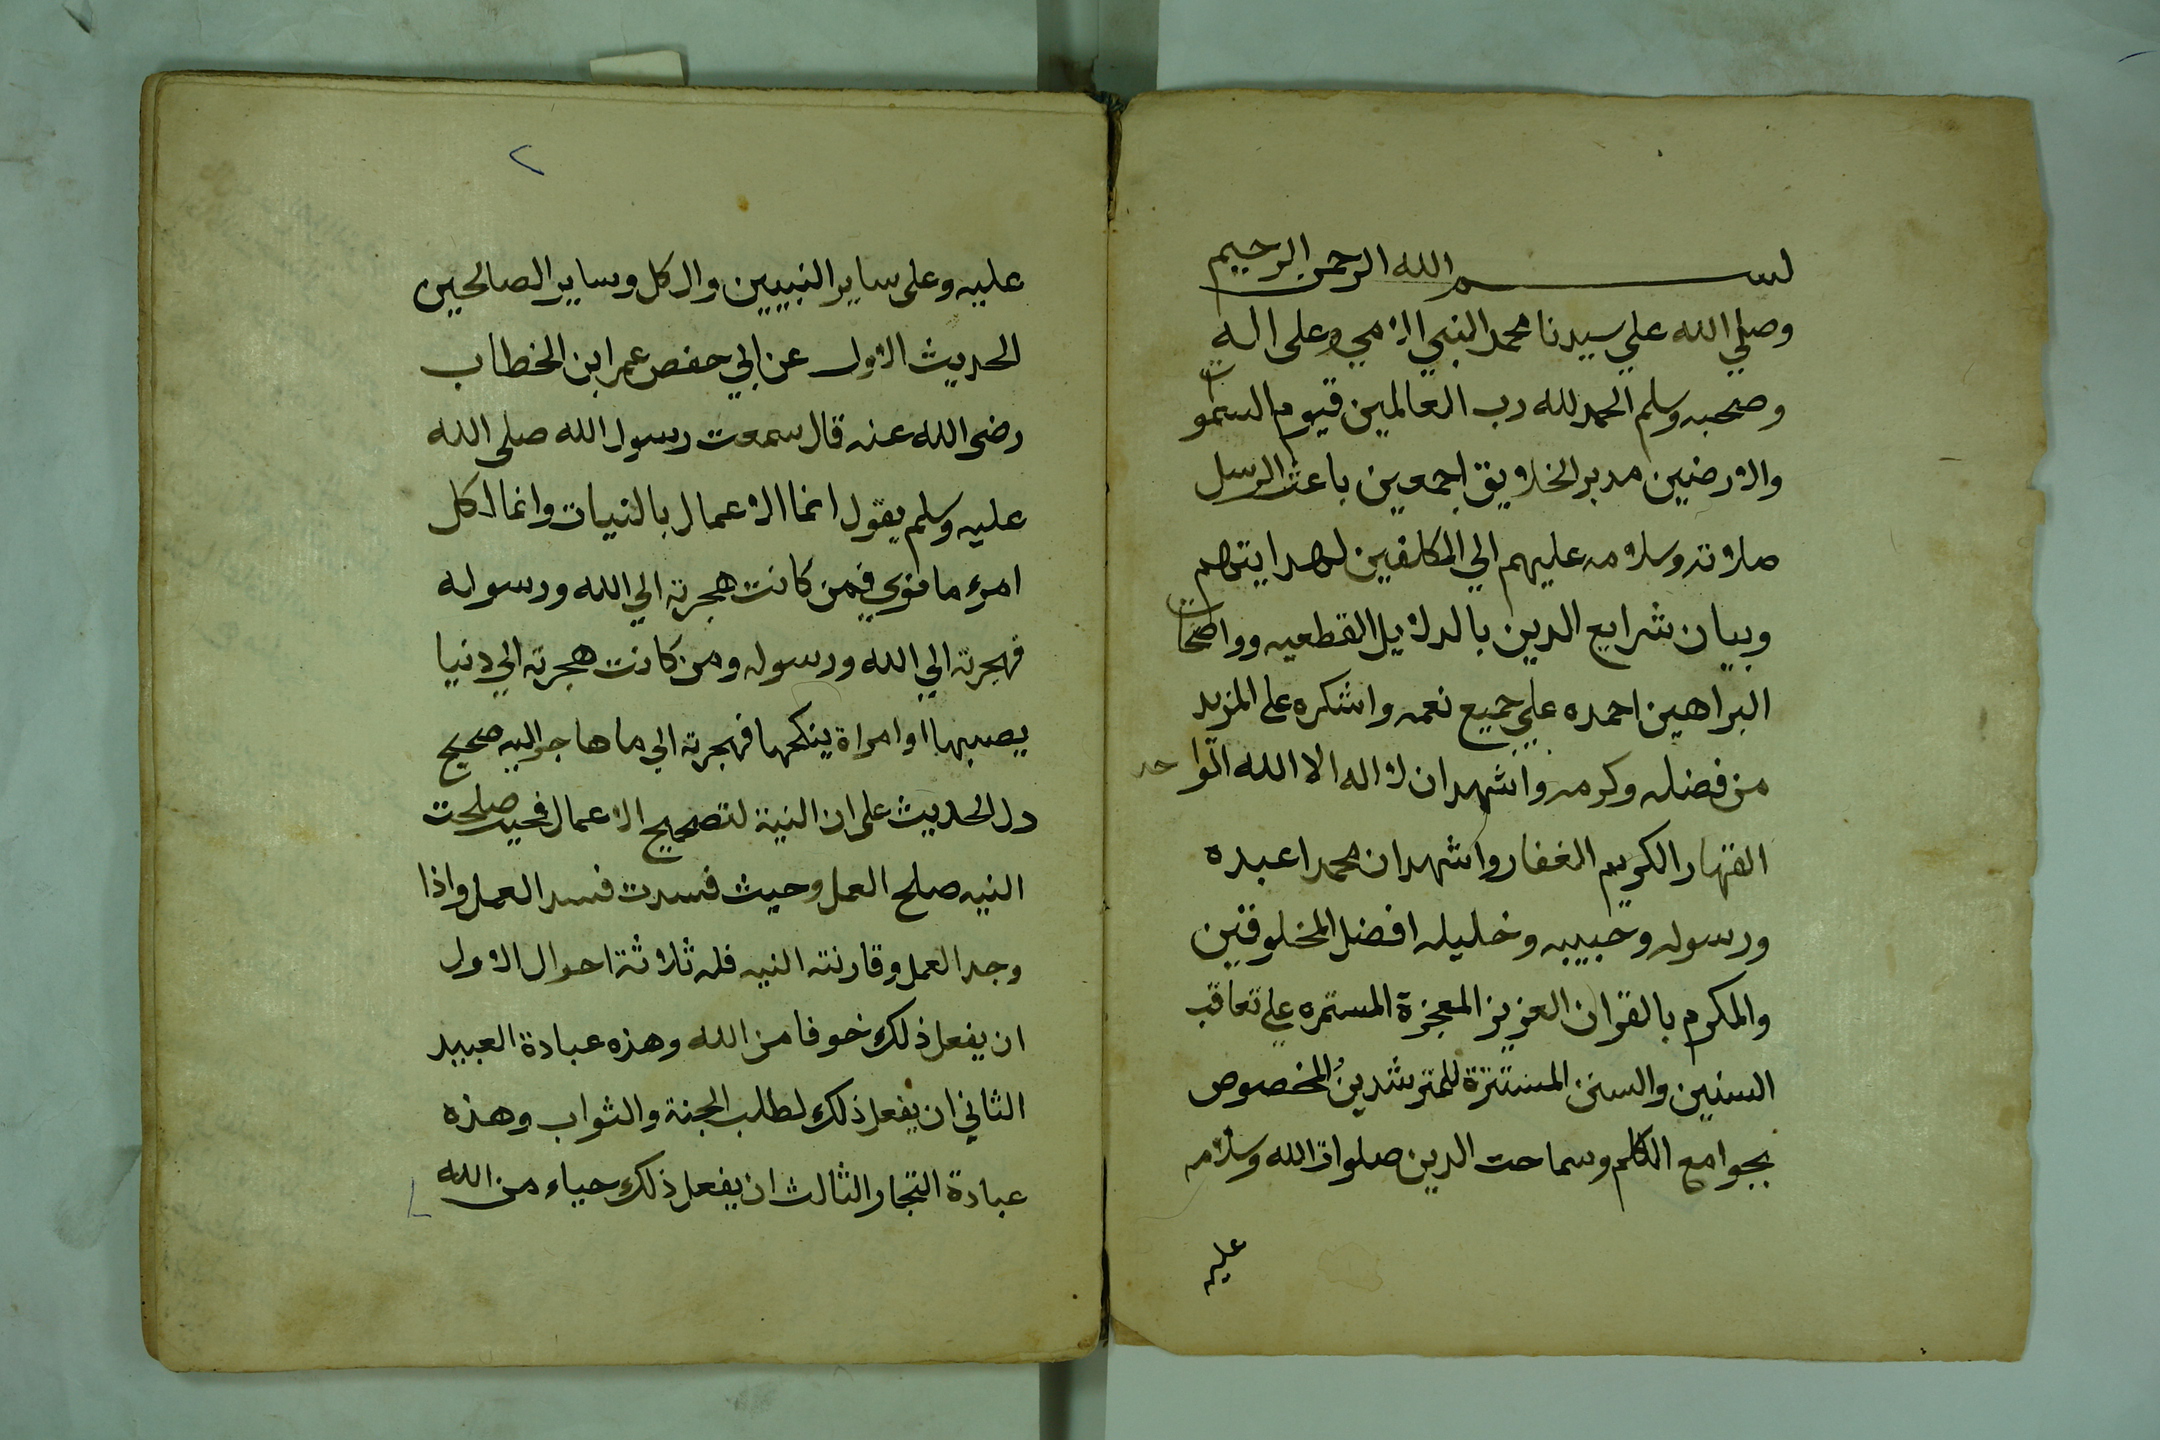 بسم الله الرحمن الرحيم
وصلي الله علي سيدنا محمد النبي الامي وعلى اله
وصحبه وسلم الحمد لله رب العالمين قيوم السموات
والارضين مدبر الخلايق اجمعين باعث الرسل
صلاته وسلامه عليهم الي المكلفين لهدايتهم
وبيان شرايع الدين بالدلايل القطعيه وواضحات
البراهين احمده علي جميع نعمه واشكره على المزيد
من فضله وكرمه واشهد ان لا اله الا الله الواحد
القهار الكريم الغفار واشهد ان محمدا عبده
ورسوله وحبيبه وخليله افضل المخلوقين
والمكرم بالقران العزيز المعجزة المستمره علي تعاقب
السنين والسنن المستنزة للمترشدين المخصوص
بجوامع الكلم وسماحت الدين صلوات الله وسلامه
عليه
٢
عليه وعلى ساير النبيين وال كل وساير الصالحين
الحديث الاول عن ابي حفص عمر ابن الخطاب
رضى الله عنه قال سمعت رسول الله صلى الله
عليه وسلم يقول انما الاعمال بالنيات وانما لكل
امرء ما نوي فمن كانت هجرته الي الله ورسوله
فهجرته الي الله ورسوله ومن كانت هجرته الي دنيا
يصيبها او امراة ينكحها فهجرته الي ما هاجر اليه صحيح
دل الحديث على ان النية لتصحيح الاعمال فحيث صلحت
النيه صلح العمل وحيث فسدت فسد العمل واذا
وجد العمل وقارنته النيه فله ثلاثة احوال الاول
ان يفعل ذلك خوفا من الله وهذه عبادة العبيد
الثاني ان يفعل ذلك لطلب الجنة والثواب وهذه
عبادة التجار الثالث ان يفعل ذلك حياء من الله